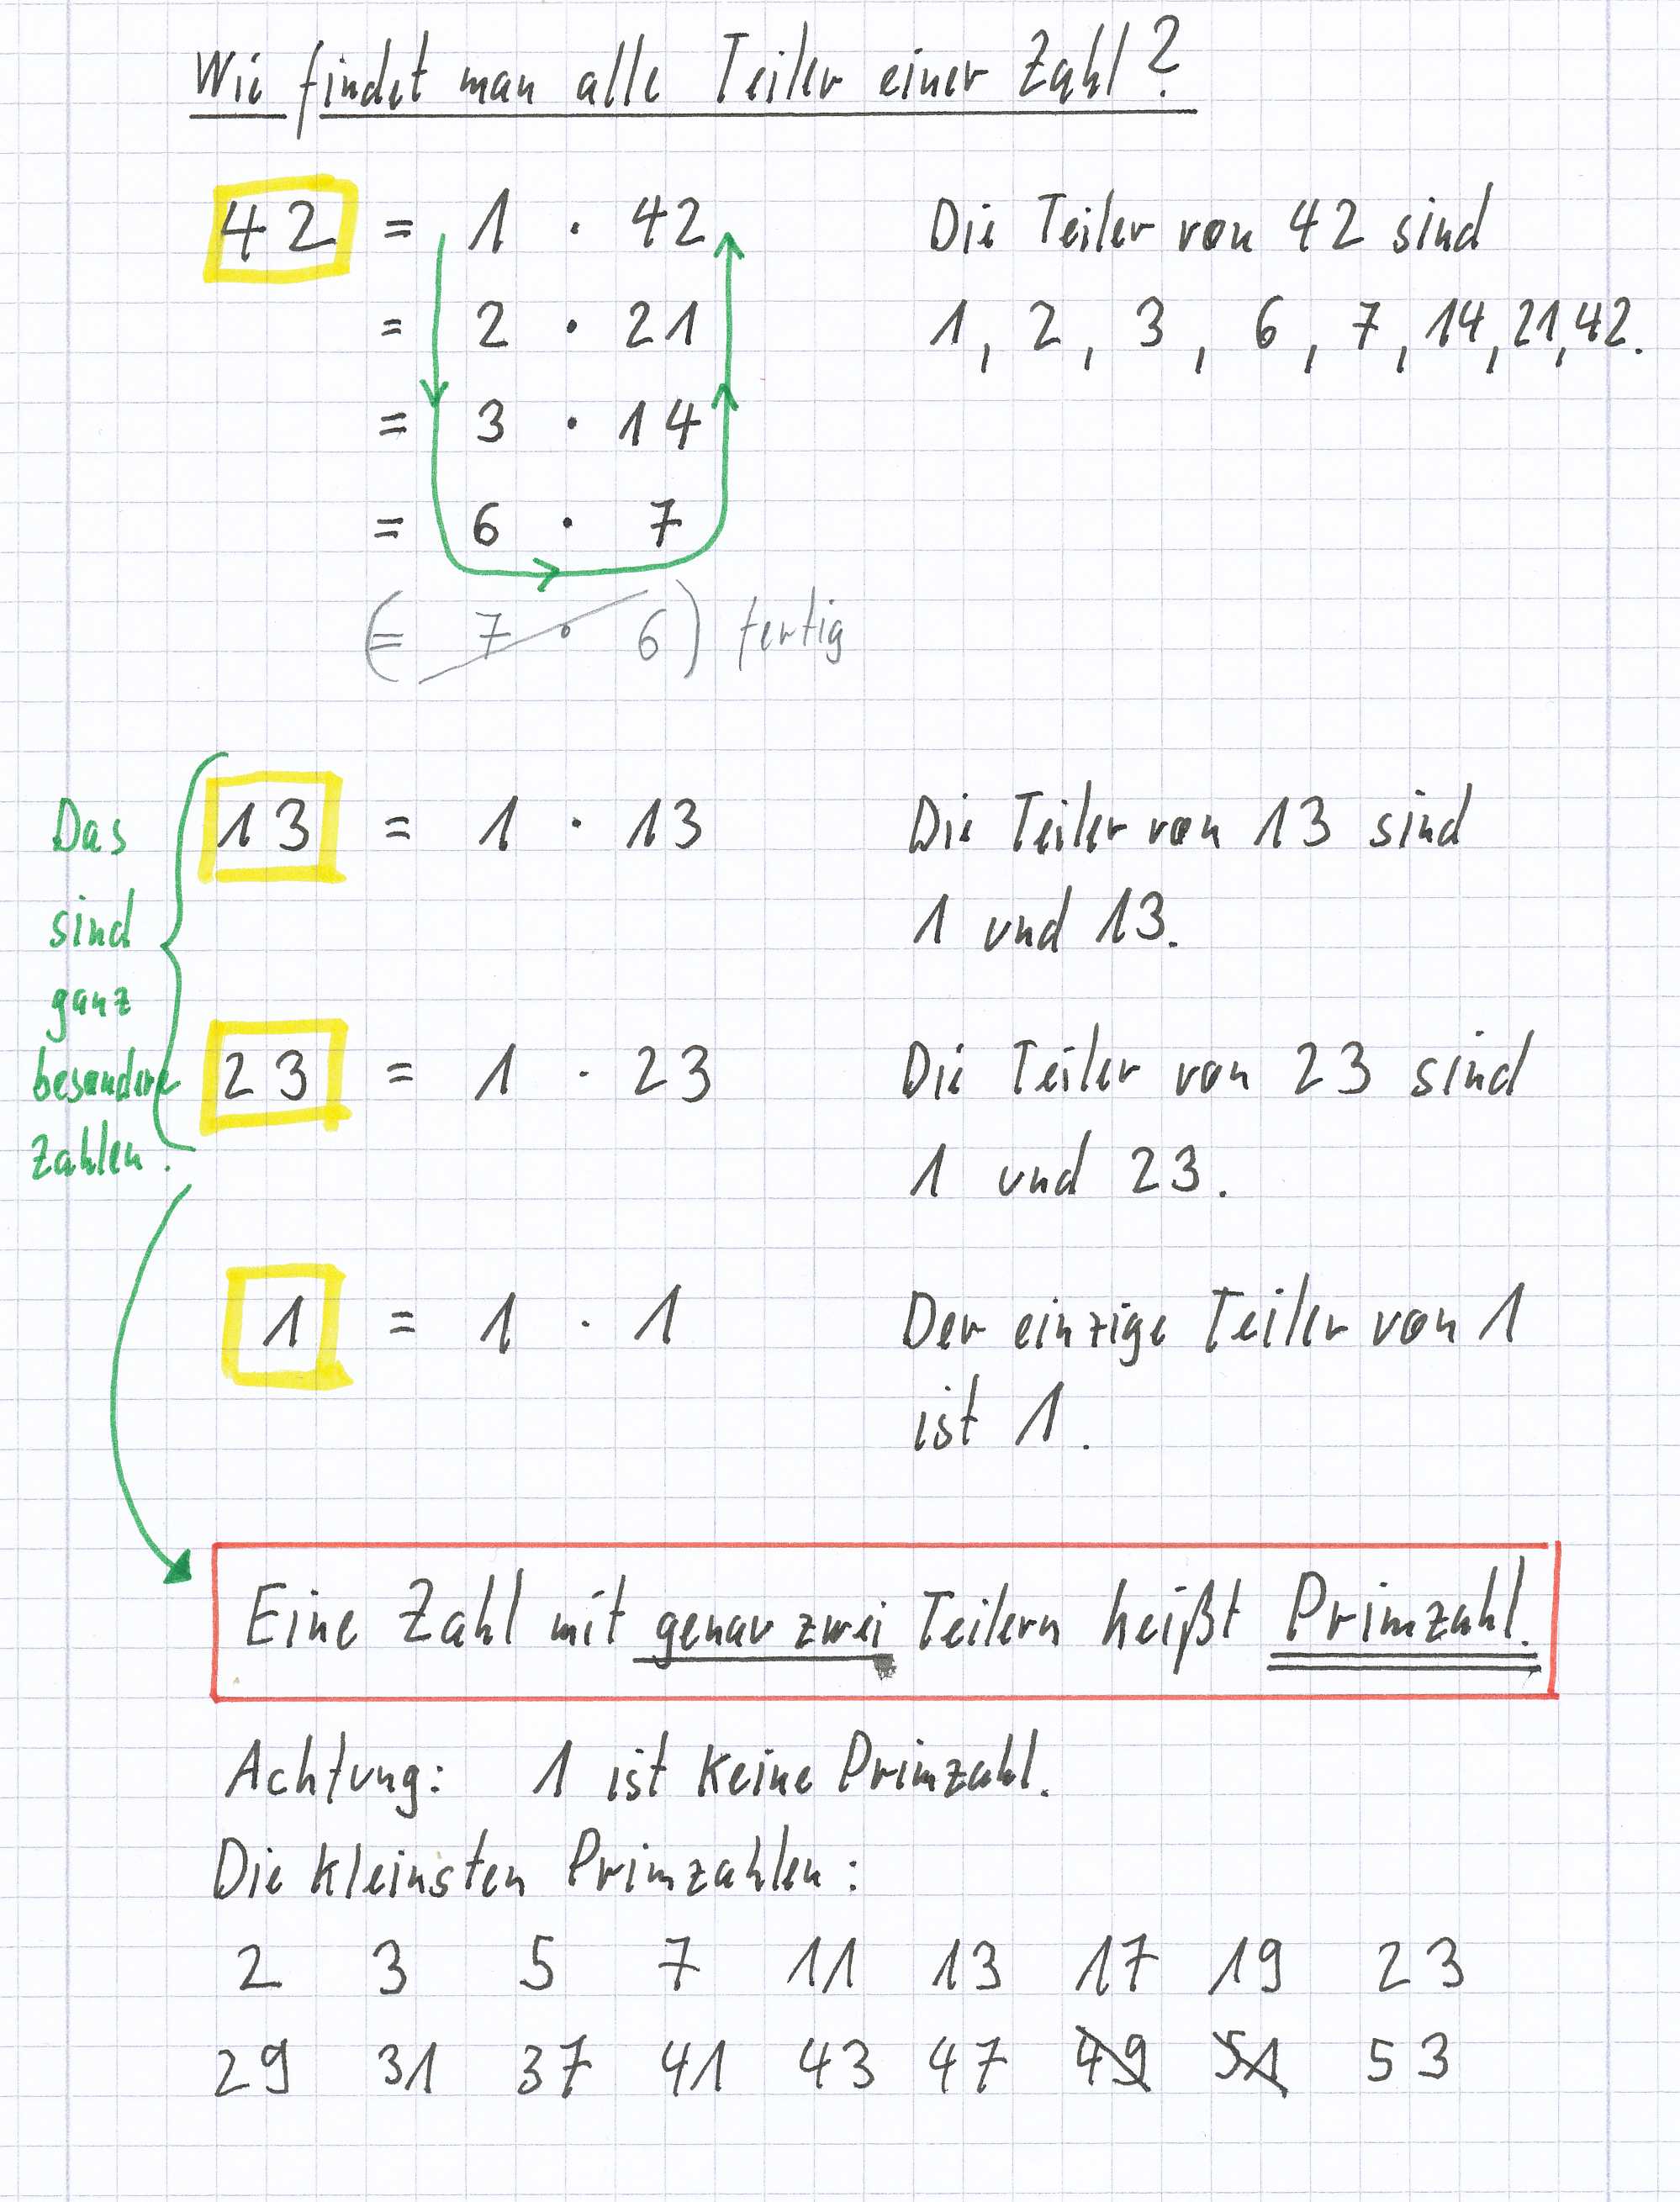 Wie findet man alle Teiler einer Zahl?
42 = 1 · 42
= 2 · 21
= 3 · 14
= 6 · 7
(= 7 · 6) fertig
Die Teiler von 42 sind
1, 2, 3, 6, 7, 14, 21, 42.
Das
sind
ganz
besondere
Zahlen.
13 = 1 · 13
Die Teiler von 13 sind
1 und 13.
23 = 1 · 23
Die Teiler von 23 sind
1 und 23.
1 = 1 · 1
Der einzige Teiler von 1
ist 1.
Eine Zahl mit genau zwei Teilern heißt Primzahl.
Achtung: 1 ist keine Primzahl.
Die kleinsten Primzahlen:
2 3 5 7 11 13 17 19 23
29 31 37 41 43 47 49 51 53